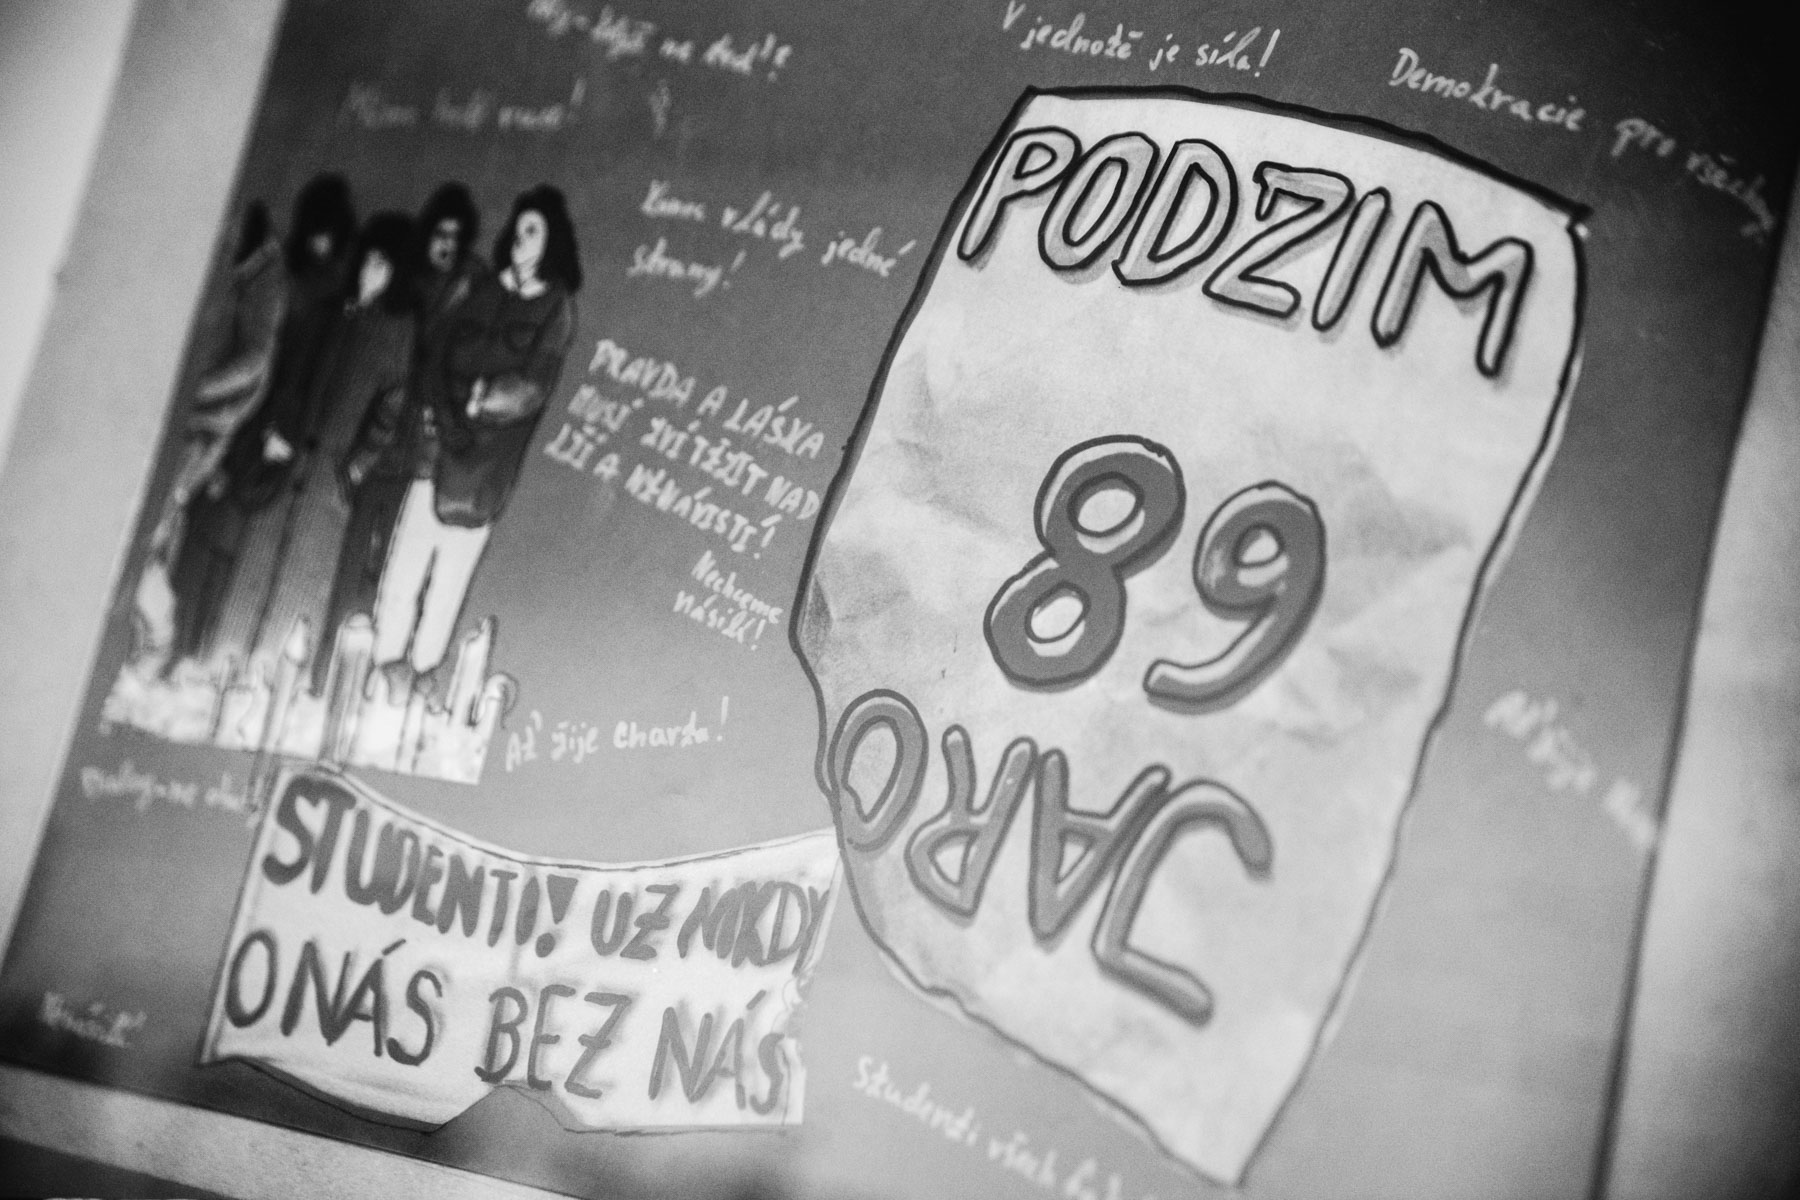 V jednotě je síla!
Demokracie pro všechny
Máme holé ruce!
Konec vlády jedné
strany!
PODZIM
89
JARO
PRAVDA A LÁSKA
MUSÍ ZVÍTĚZIT NAD
LŽÍ A NENÁVISTÍ!
Nechceme
násilí!
Ať žije charta!
STUDENTI! UŽ NIKDY
O NÁS BEZ NÁS
Ať žije
Studenti všech